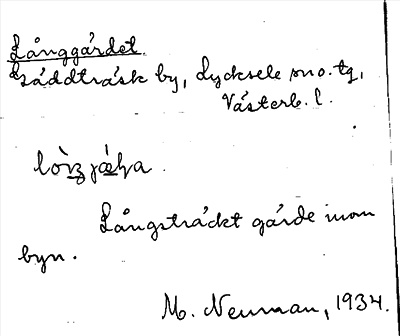 Långgärdet
Gäddträsk by, Lycksele sno. tg,
Västerb. l.
Långsträckt gärde inom
byn.
M. Neuman, 1934.